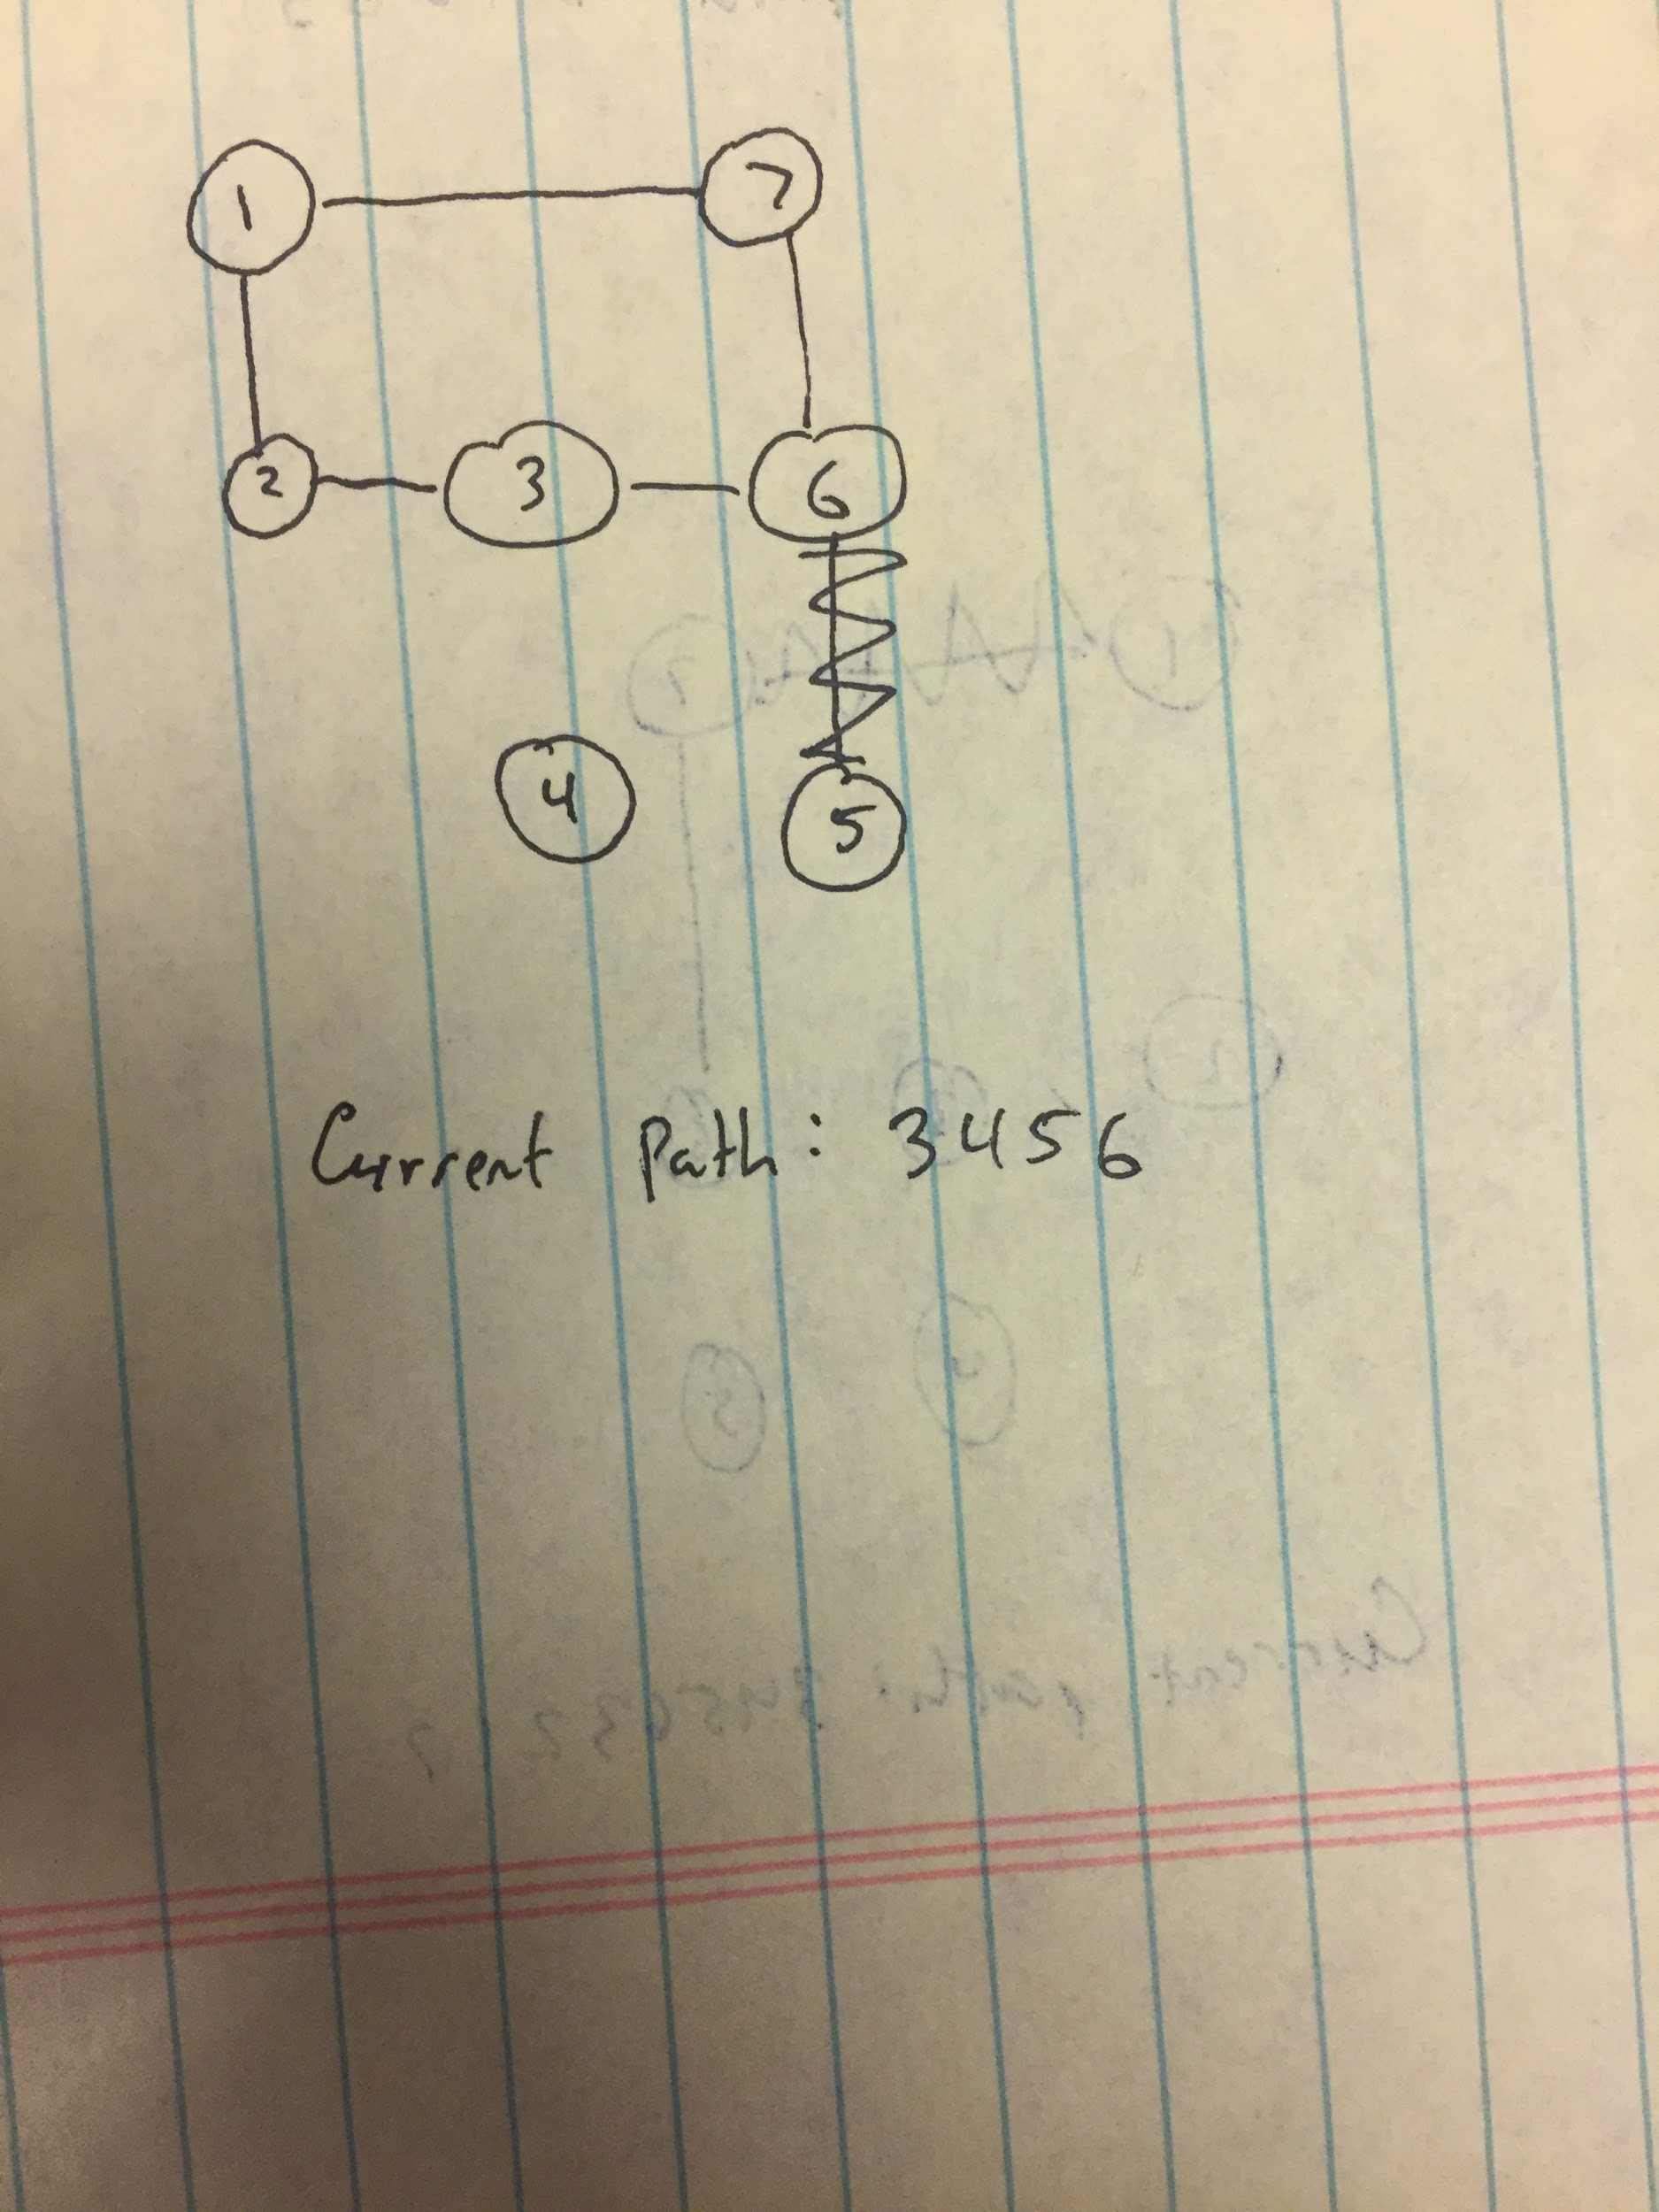 1 7
2 3 6
4 5
Current Path: 3456